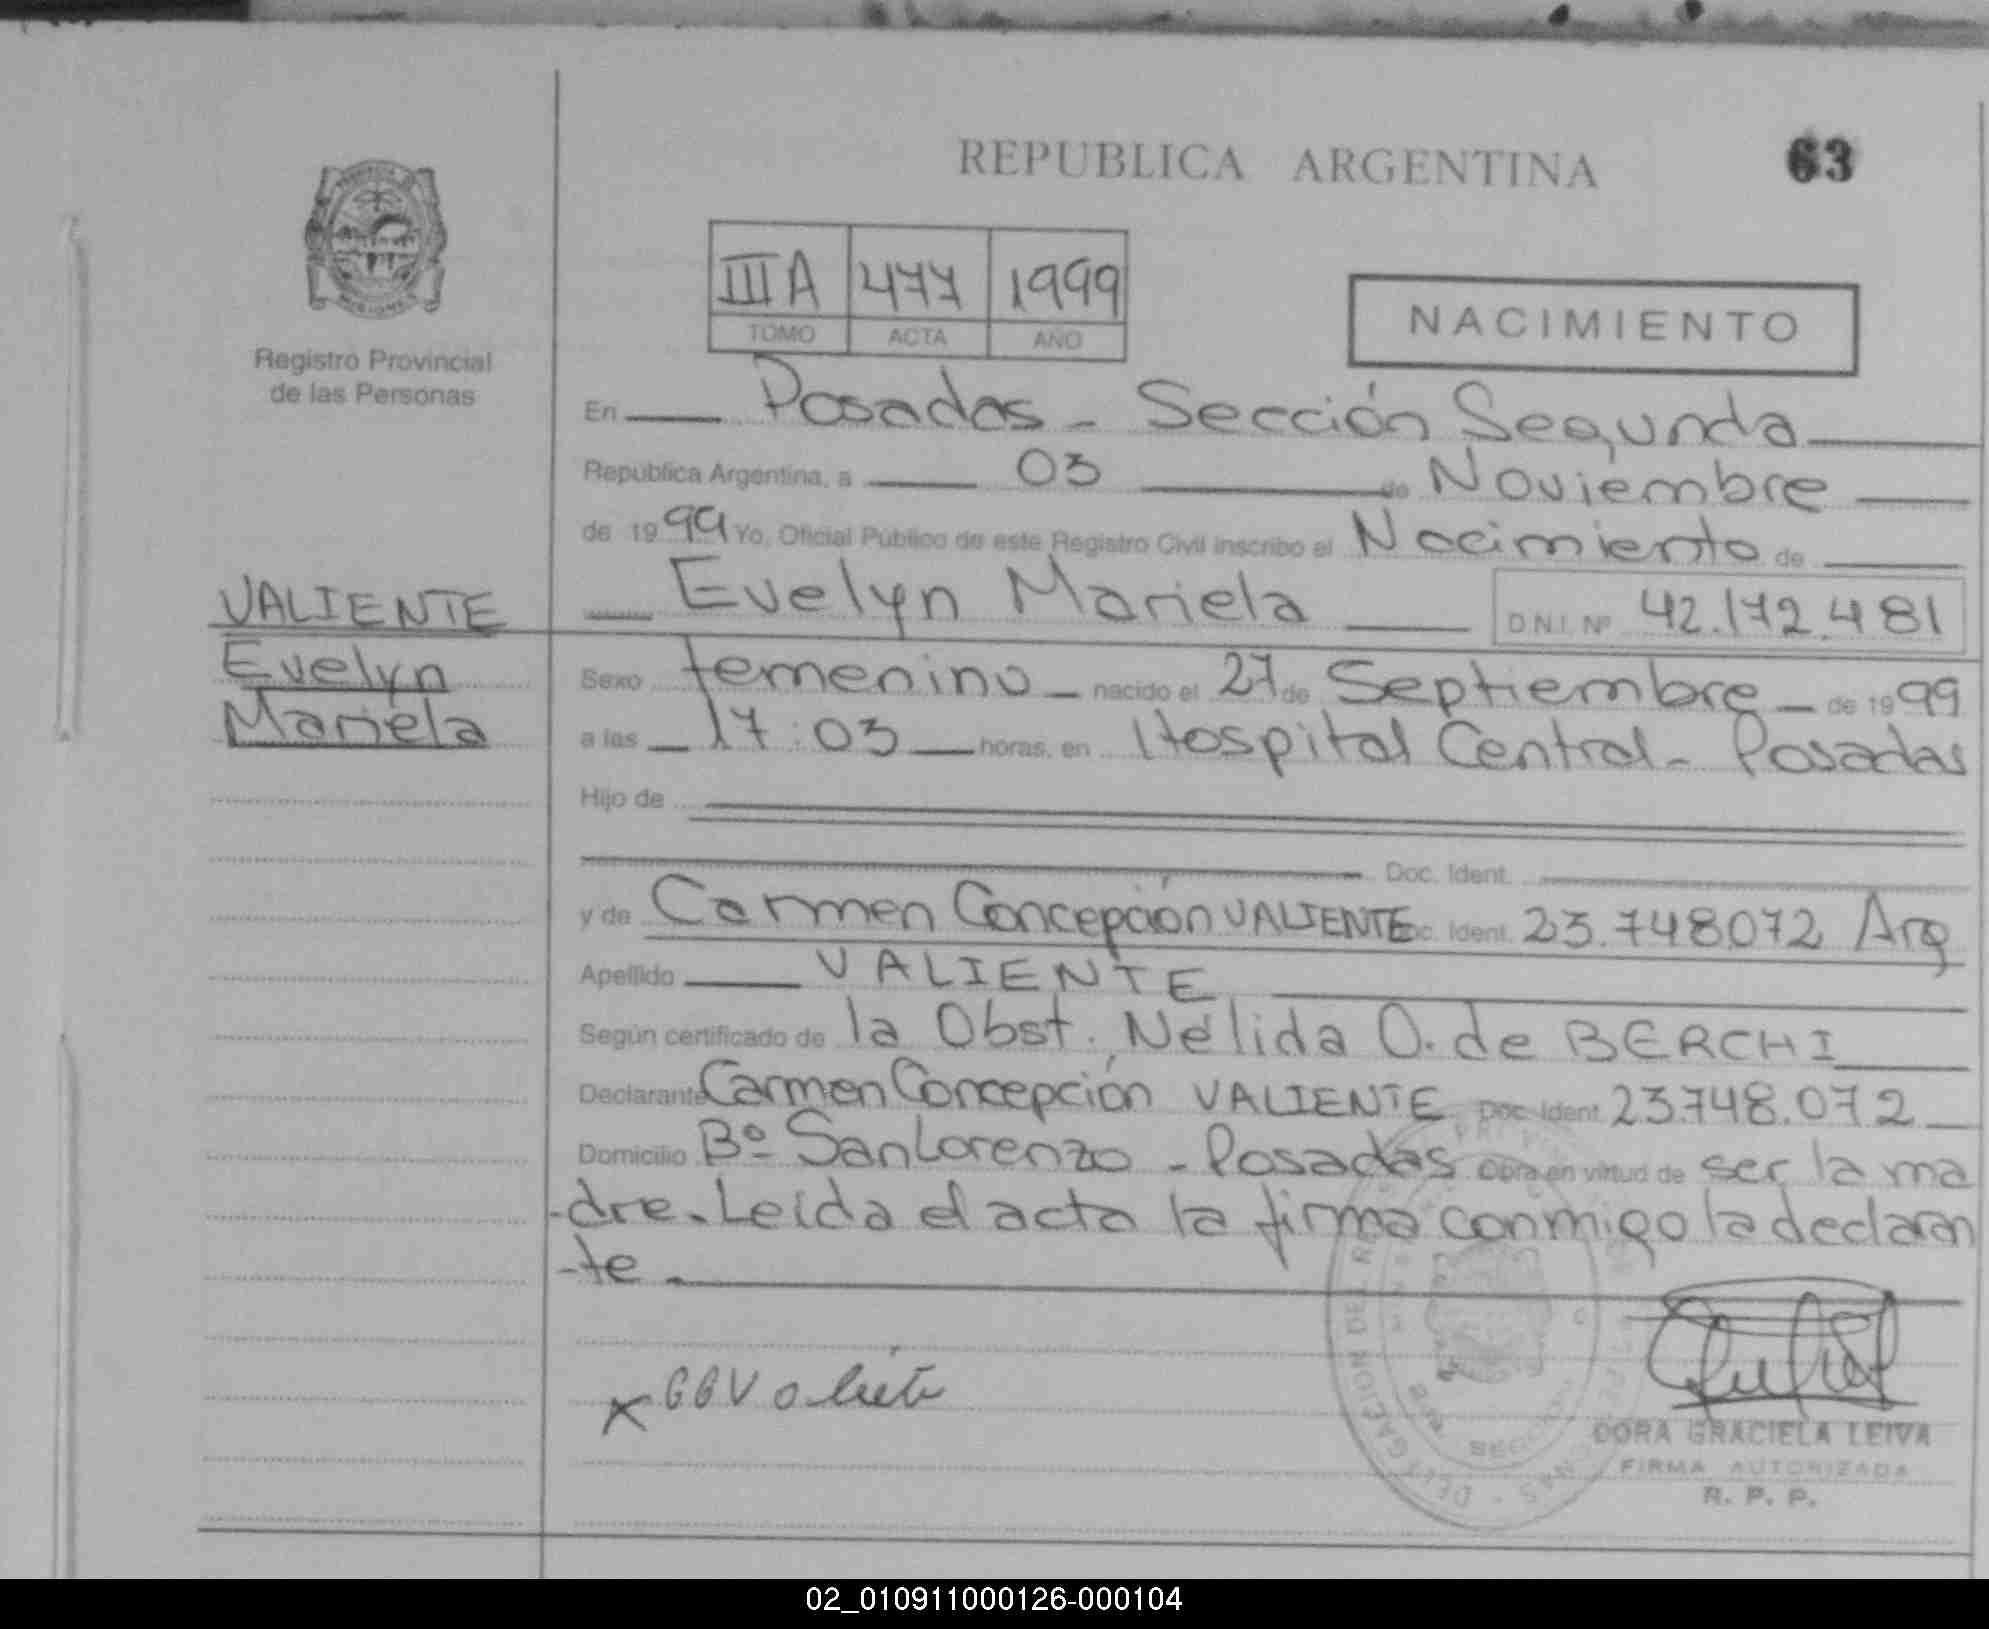 REPUBLICA ARGENTINA
63
III A 477 1999
TOMO ACTA AÑO
NACIMIENTO
Registro Provincial
de las Personas
En Posadas - Sección Segunda
Republica Argentina, a 03 de Noviembre
de 1999 Yo, Oficial Público de este Registro Civil inscribo el Nacimiento de
Evelyn Mariela D.N.I. Nº 42.172.481
VALIENTE
Evelyn
Mariela
Sexo femenino - nacido el 27 de Septiembre - de 1999
a las 17:03 horas, en Hospital Central - Posadas
Hijo de
Doc. Ident.
y de Carmen Concepción VALIENTE Doc. Ident. 23.748.072 Arg
Apellido VALIENTE
Según certificado de la Obst. Nélida O. de BERCHI
Declarante Carmen Concepción VALIENTE Doc. Ident. 23.748.072
Domicilio Bº San Lorenzo - Posadas Obra en virtud de ser la ma
-dre. Leída el acta la firma conmigo la declaran
-te
DORA GRACIELA LEIVA
FIRMA AUTORIZADA
R. P. P.
02_010911000126-000104